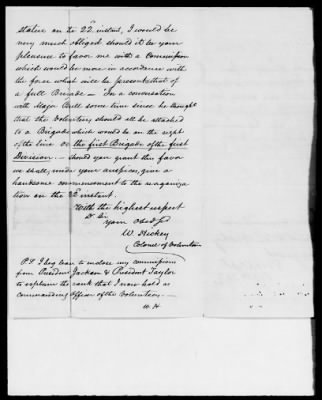 statue on the 22d instant, I would be
very much obliged should it be your
pleasure to favor me with a Commission
which would be more in accordance with
the force what will be present that of
a full Brigade - In a conversation
with Major Bull some time since he thought
that the Volunteers should all be attached
to a Brigade which would be on the right
of the line or the first Brigade of the first
Division - should you grant this favor
we shall, under your auspices, give a
handsome commencement to the reorganiza
tion on the 22d instant.
With the highest respect
Your obed
W. Hickey
Colonel of Volunteers
P.S I beg leave to inclose my commissions
from President Jackson & President Taylor
to explain the rank that I now hold as
commanding officer of the Volunteers
W. H